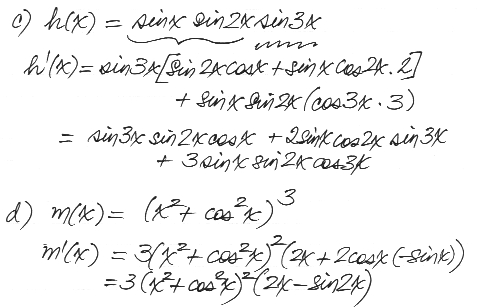 c) h(x) = sinx sin2x sin3x
h'(x) = sin3x[sin2xcosx + sinx cos2x. 2]
+ sinx sin2x (cos3x · 3)
= sin3x sin2x cosx + 2sinx cos2x sin3x
+ 3 sinx sin2x cos3x
d) m(x) = (x² + cos²x)³
m'(x) = 3(x² + cos²x)²(2x + 2cosx (-sinx))
= 3(x² + cos²x)²(2x - sin2x)